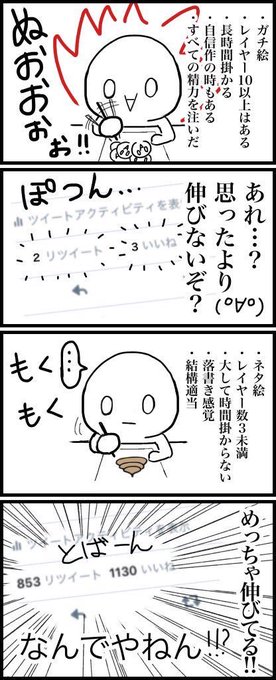 ・ガチ絵
・レイヤー10以上はある
・長時間掛かる
・自信作の時もある
・すべての精力を注いだ
ぬおおおぉぉ!!
あれ…?
思ったより
伸びないぞ?
(ﾟAﾟ)
ぽつん…
ツイートアクティビティを表
2 リツイート 3 いいね
・ネタ絵
・レイヤー数3未満
・大して時間掛からない
・落書き感覚
・結構適当
…
もくもく
めっちゃ伸びてる!!
ツイートアクティビティを表示
どばーん
853 リツイート 1130 いいね
なんでやねん!!?